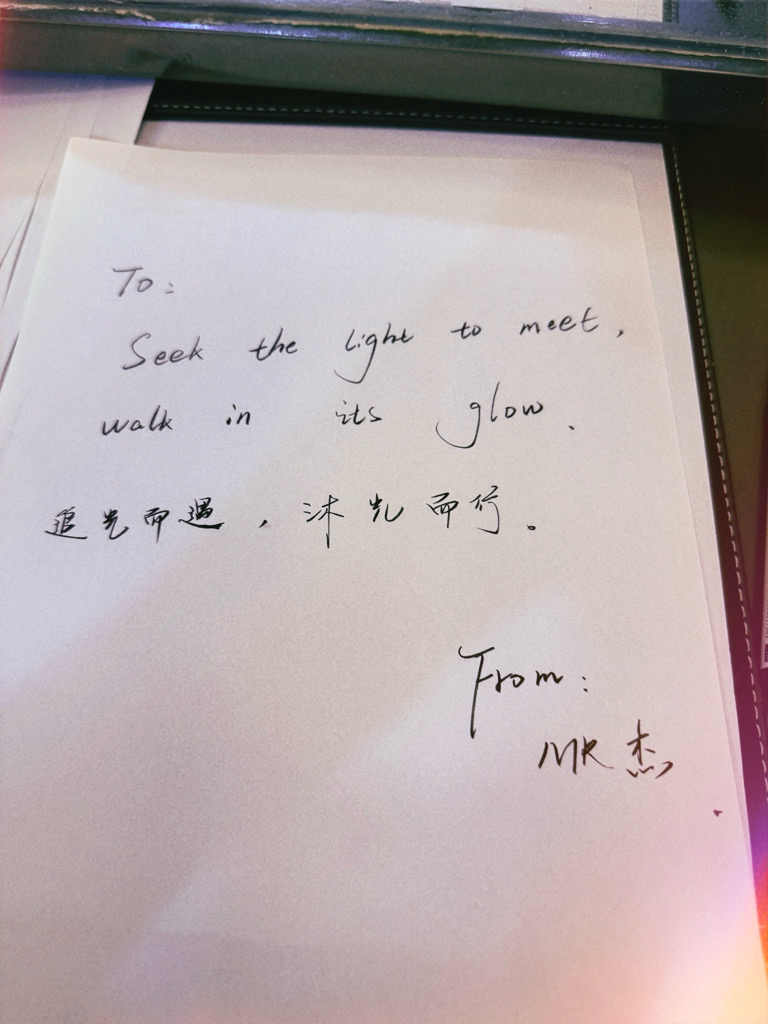 To:
Seek the light to meet,
walk in its glow.
追光而遇，沐光而行。
From:
MR 杰